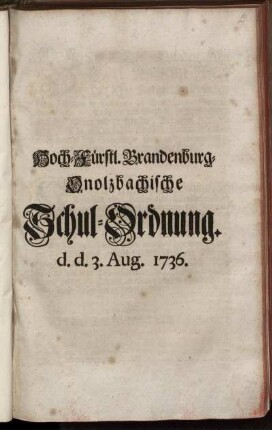 Hoch-Fürstl. Brandenburg-
Onolzbachische
Schul-Ordnung.
d. d. 3. Aug. 1736.